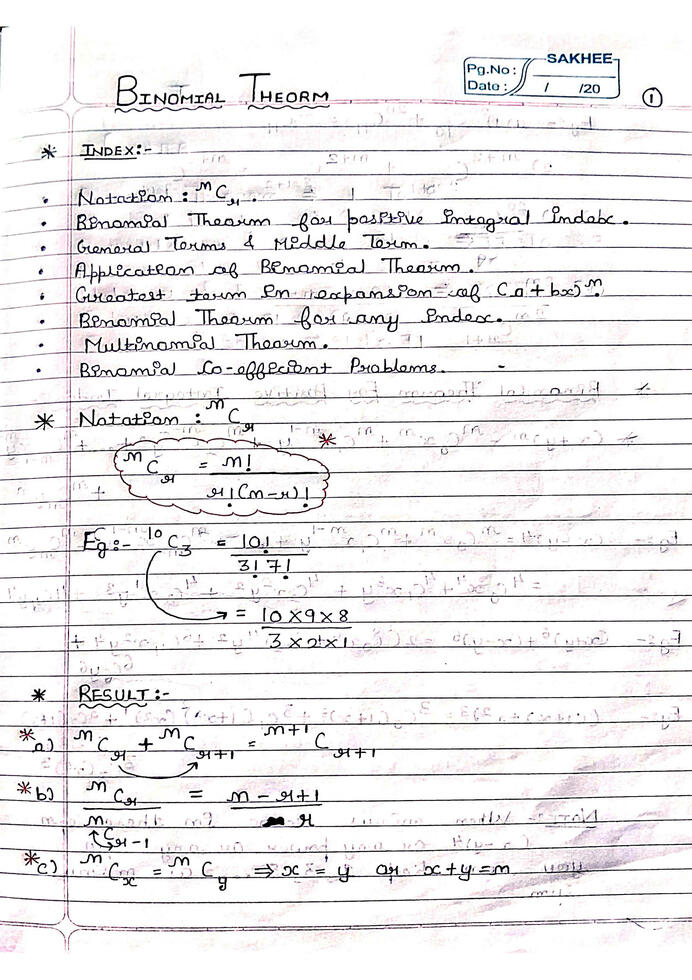 SAKHEE
Pg.No:
Date: / /20
①
BINOMIAL THEORM
* INDEX:-
• Notation: ⁿCᵣ.
• Binomial Theorm for positive Integral Index.
• General Terms & Middle Term.
• Application of Binomial Theorm.
• Greatest term in expansion of (a+bx)ⁿ.
• Binomial Theorm for any index.
• Multinomial Theorm.
• Binomial Co-efficient Problems.
* Notation: ⁿCᵣ
ⁿCᵣ = n! / r!(n-r)! *
Eg:- ¹⁰C₃ = 10! / 3! 7!
= 10×9×8 / 3×2×1
* RESULT:-
* a) ⁿCᵣ + ⁿCᵣ₊₁ = ⁿ⁺¹Cᵣ₊₁
* b) ⁿCᵣ / ⁿCᵣ₋₁ = n-r+1 / r
* c) ⁿCₓ = ⁿCy ⇒ x = y or x+y=n